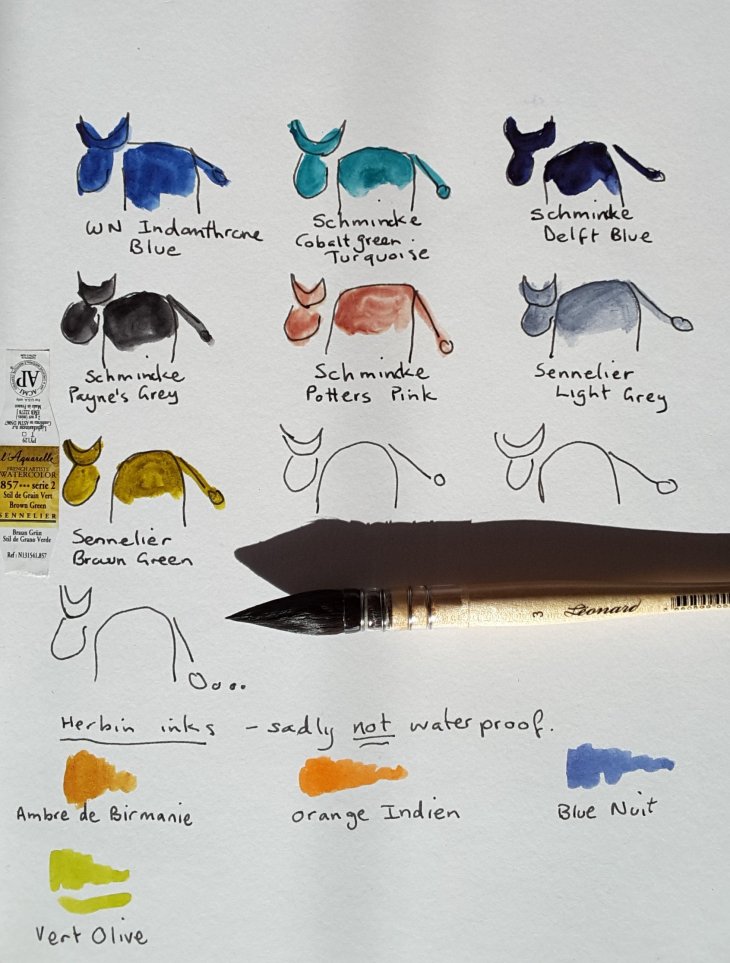 WN Indanthrone
Blue
Schmincke
Cobalt green
Turquoise
Schmincke
Delft Blue
Schmincke
Payne's Grey
Schmincke
Potters Pink
Sennelier
Light Grey
AP
l'Aquarelle
FRENCH ARTISTS'
WATERCOLOR
857 *** serie 2
Stil de Grain Vert
Brown Green
SENNELIER
Braun Grün
Stil de Grano Verde
Ref : N131541.857
Sennelier
Brown Green
3 Léonard
Herbin inks - sadly not waterproof.
Ambre de Birmanie
Orange Indien
Blue Nuit
Vert Olive